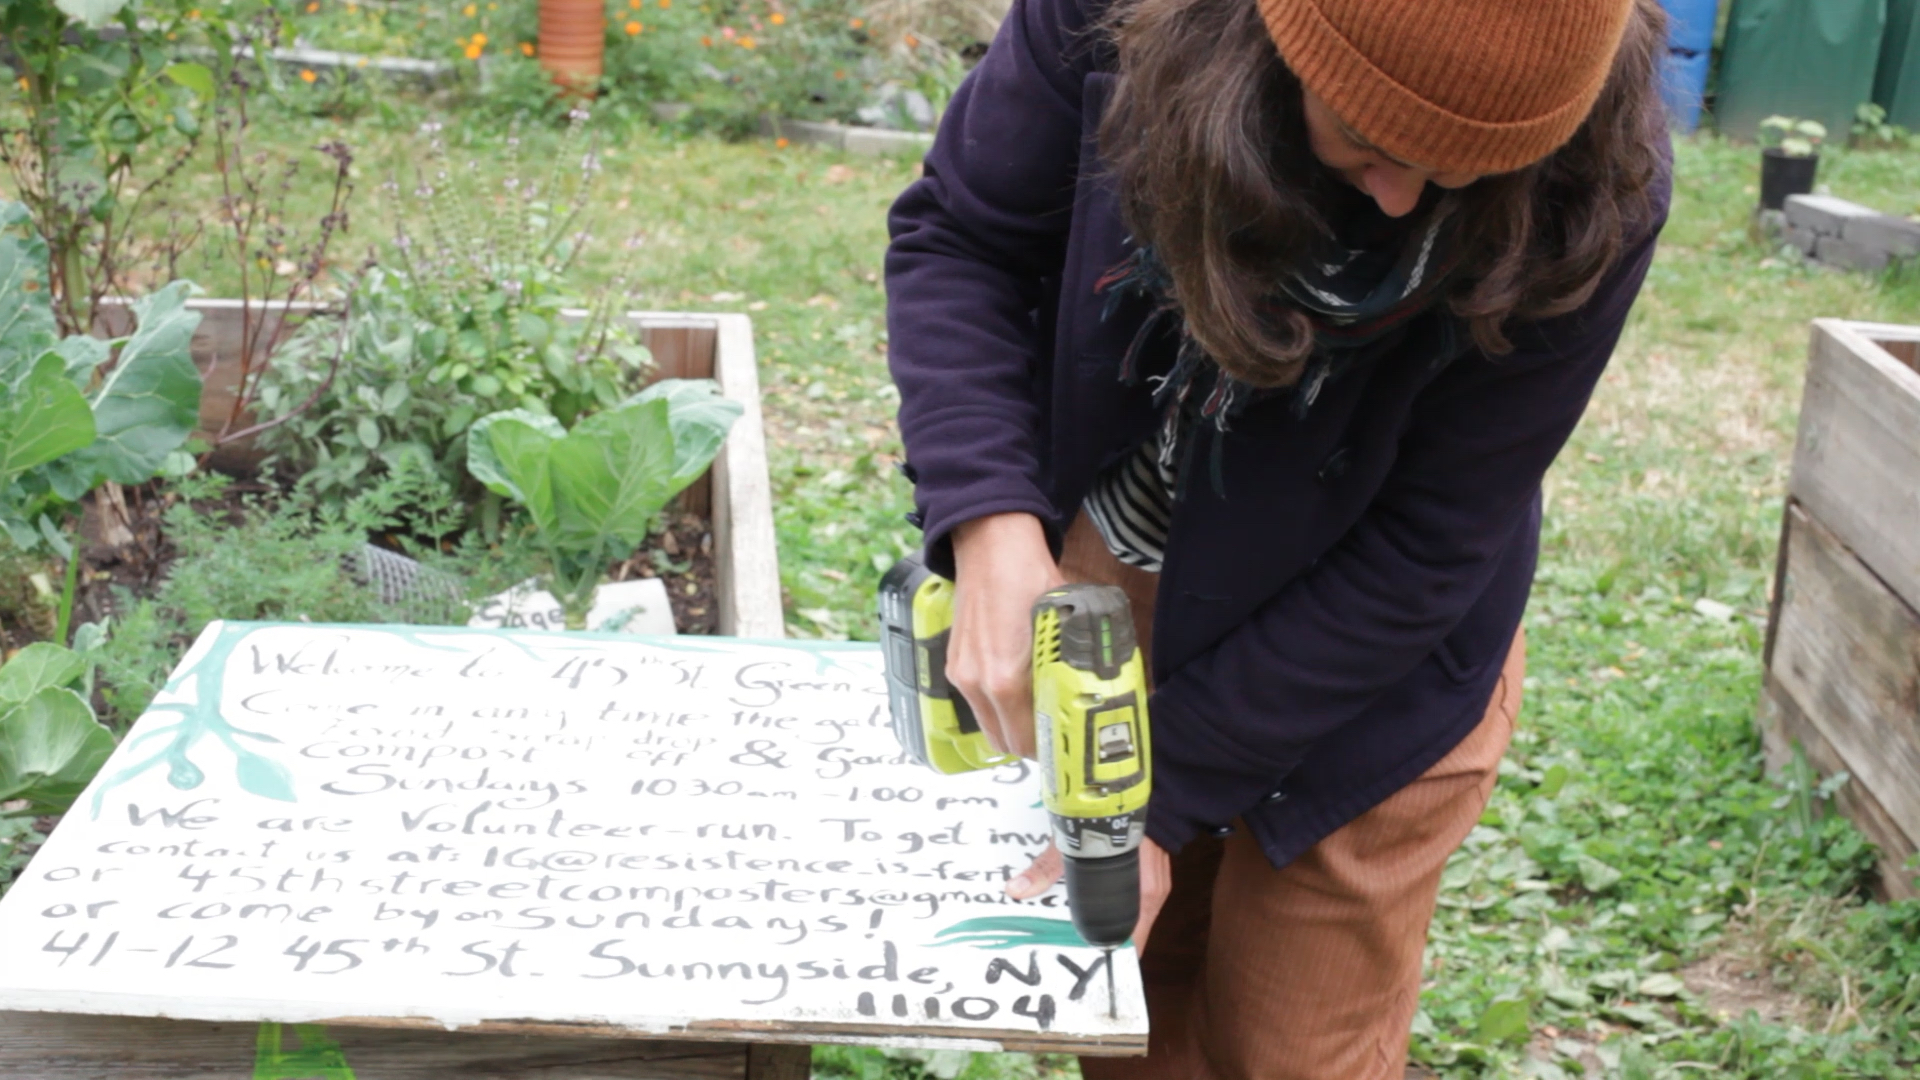 Sage
Welcome to 45th St. Green
Come in any time the gate
food scrap drop
compost off & Garde
Sundays 10 30am - 1:00 pm
We are Volunteer-run. To get inv
contact us at: IG@resistence_is_fert
or 45thstreetcomposters@gmail.c
or come by on Sundays!
41-12 45th St. Sunnyside, NY
11104
20